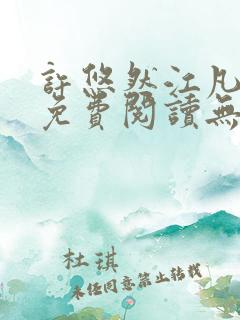 許悠然江凡
免費閱讀無
杜琪
未經同意禁止轉載